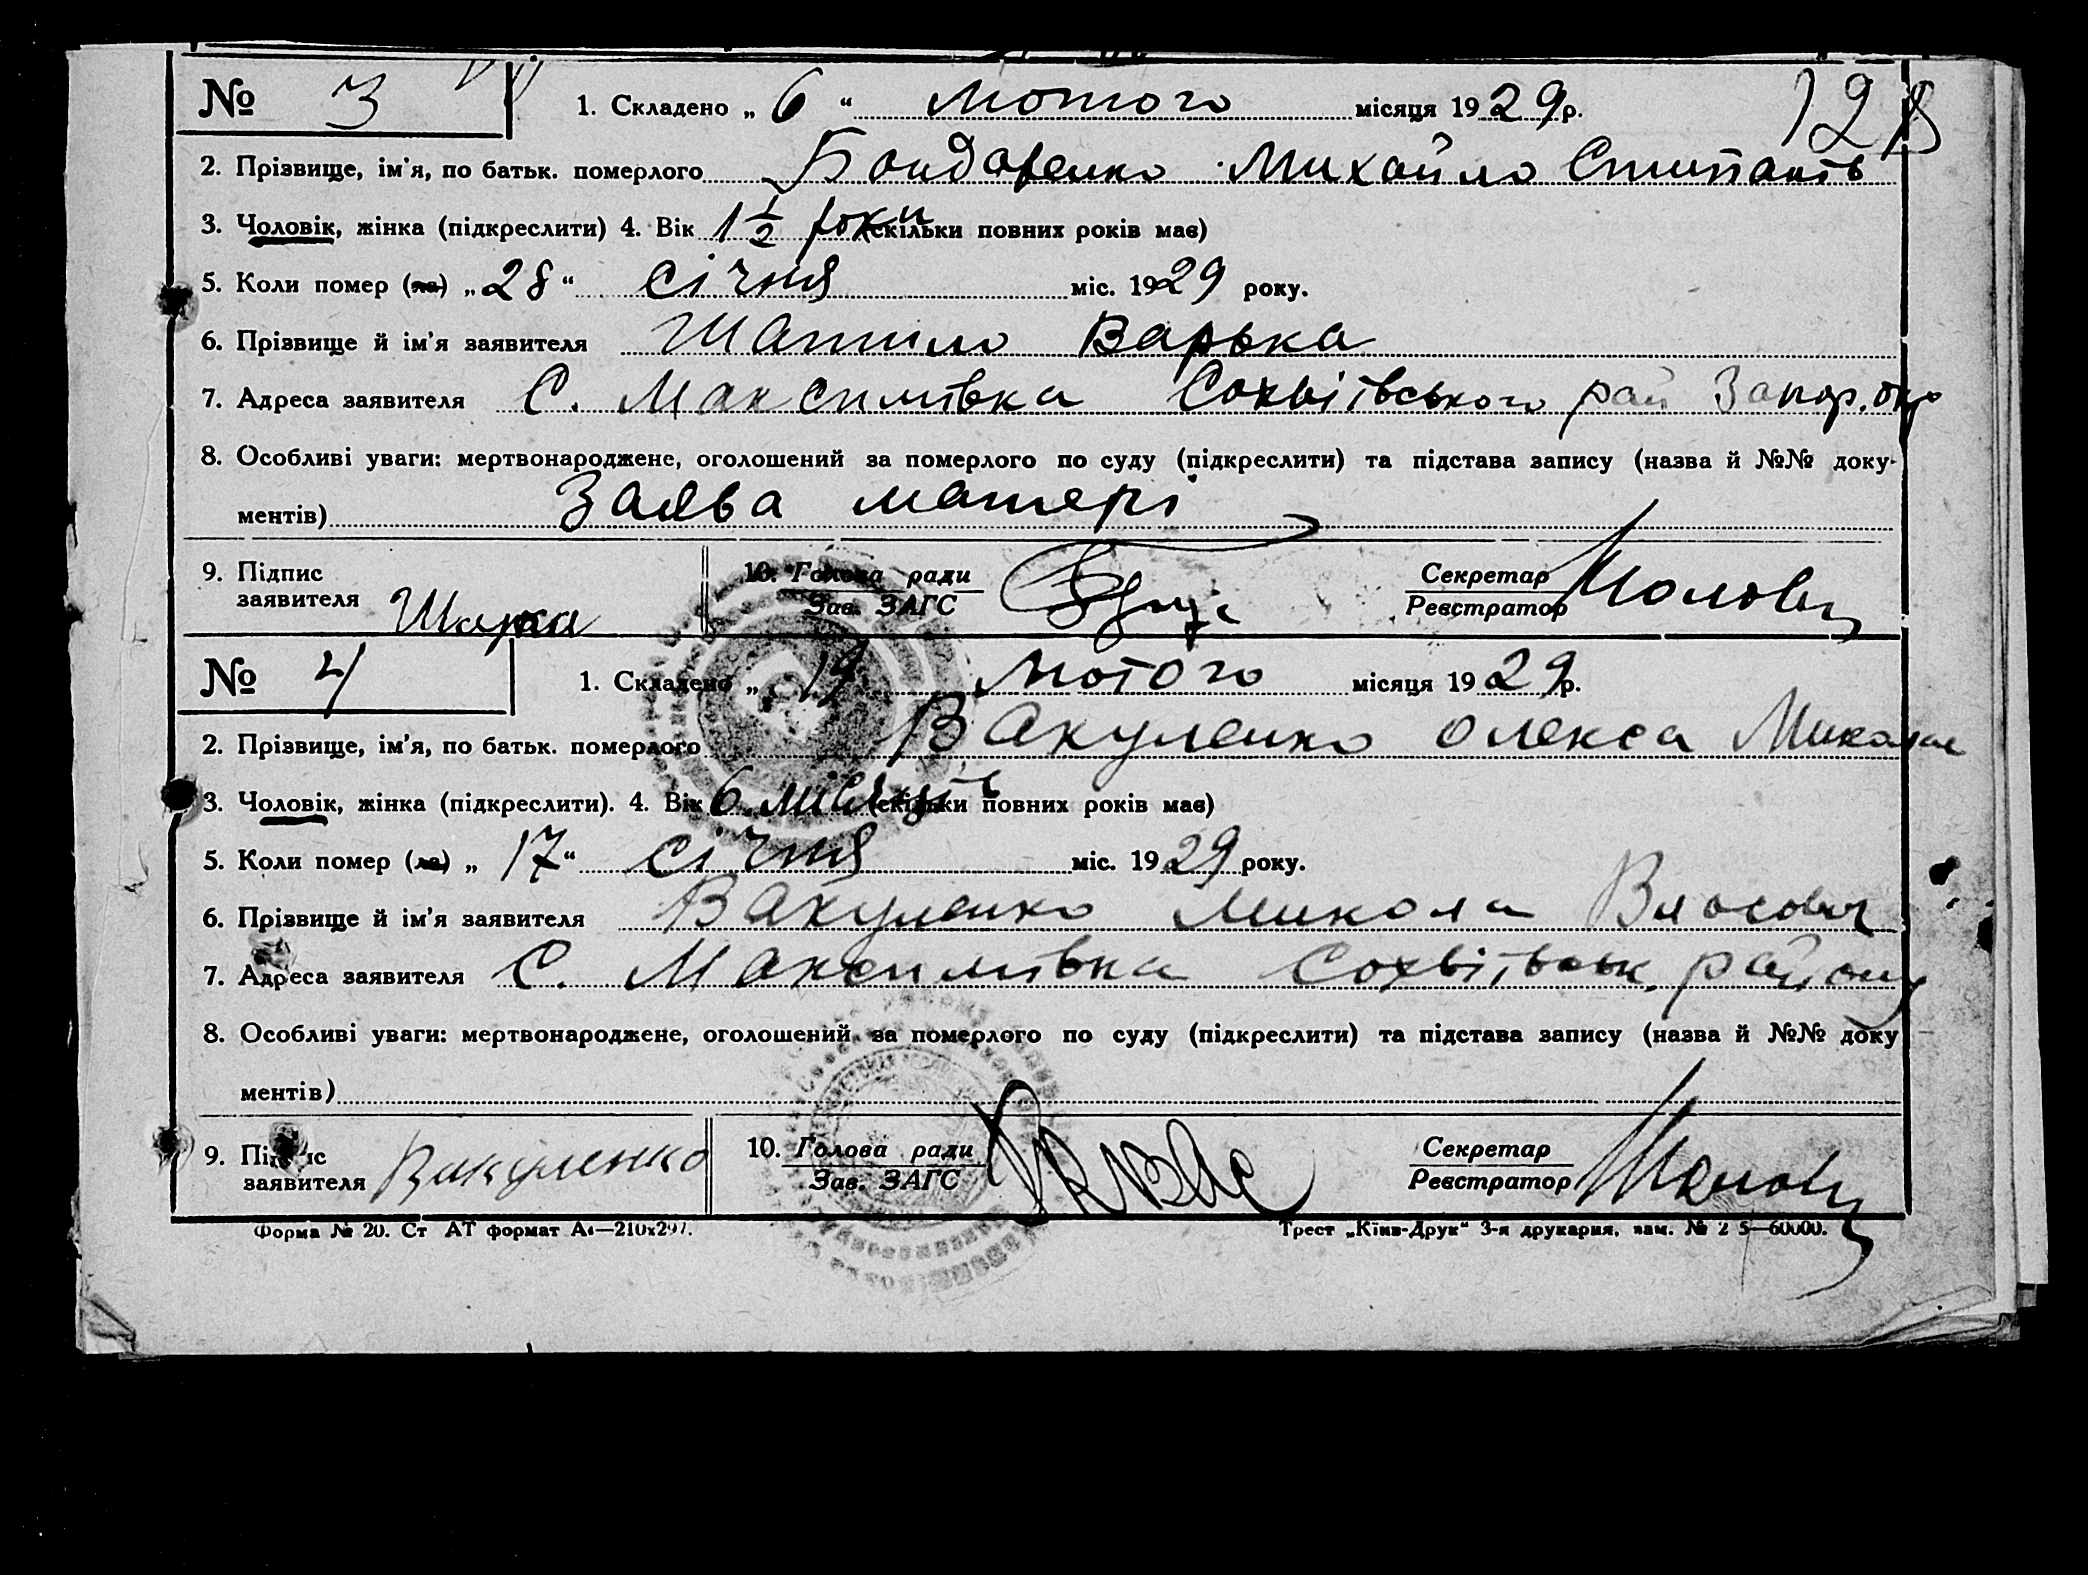 № 3 1. Складено „ 6 “ лютого місяця 1929 р. 128
2. Прізвище, ім'я, по батьк. померлого Бондаренко Михайло
3. Чоловік, жінка (підкреслити) 4. Вік 1 1/2 роки (скільки повних років має)
5. Коли помер (ла) „28“ січня міс. 1929 року.
6. Прізвище й ім'я заявителя Варька
7. Адреса заявителя С. Максимівка рай Запор. окр
8. Особливі уваги: мертвонароджене, оголошений за померлого по суду (підкреслити) та підстава запису (назва й №№ доку-
ментів) Заява матері
9. Підпис
заявителя
10. Голова ради
Зав. ЗАГС
Секретар
Реєстратор
№ 4 1. Складено „ 19 лютого місяця 1929 р.
2. Прізвище, ім'я, по батьк. померлого Вакуленко Олекса
3. Чоловік, жінка (підкреслити). 4. Вік 6 місяців (скільки повних років має)
5. Коли помер (ла) „ 17“ січня міс. 1929 року.
6. Прізвище й ім'я заявителя Вакуленко Микола Власович
7. Адреса заявителя С. Максимівка району
8. Особливі уваги: мертвонароджене, оголошений за померлого по суду (підкреслити) та підстава запису (назва й №№ доку
ментів)
9. Підпис
заявителя Вакуленко
10. Голова ради
Зав. ЗАГС
Секретар
Реєстратор
Форма № 20. Ст АТ формат А4—210х297. Трест „Київ-Друк“ 3-я друкарня, зам. № 2 5—60000.